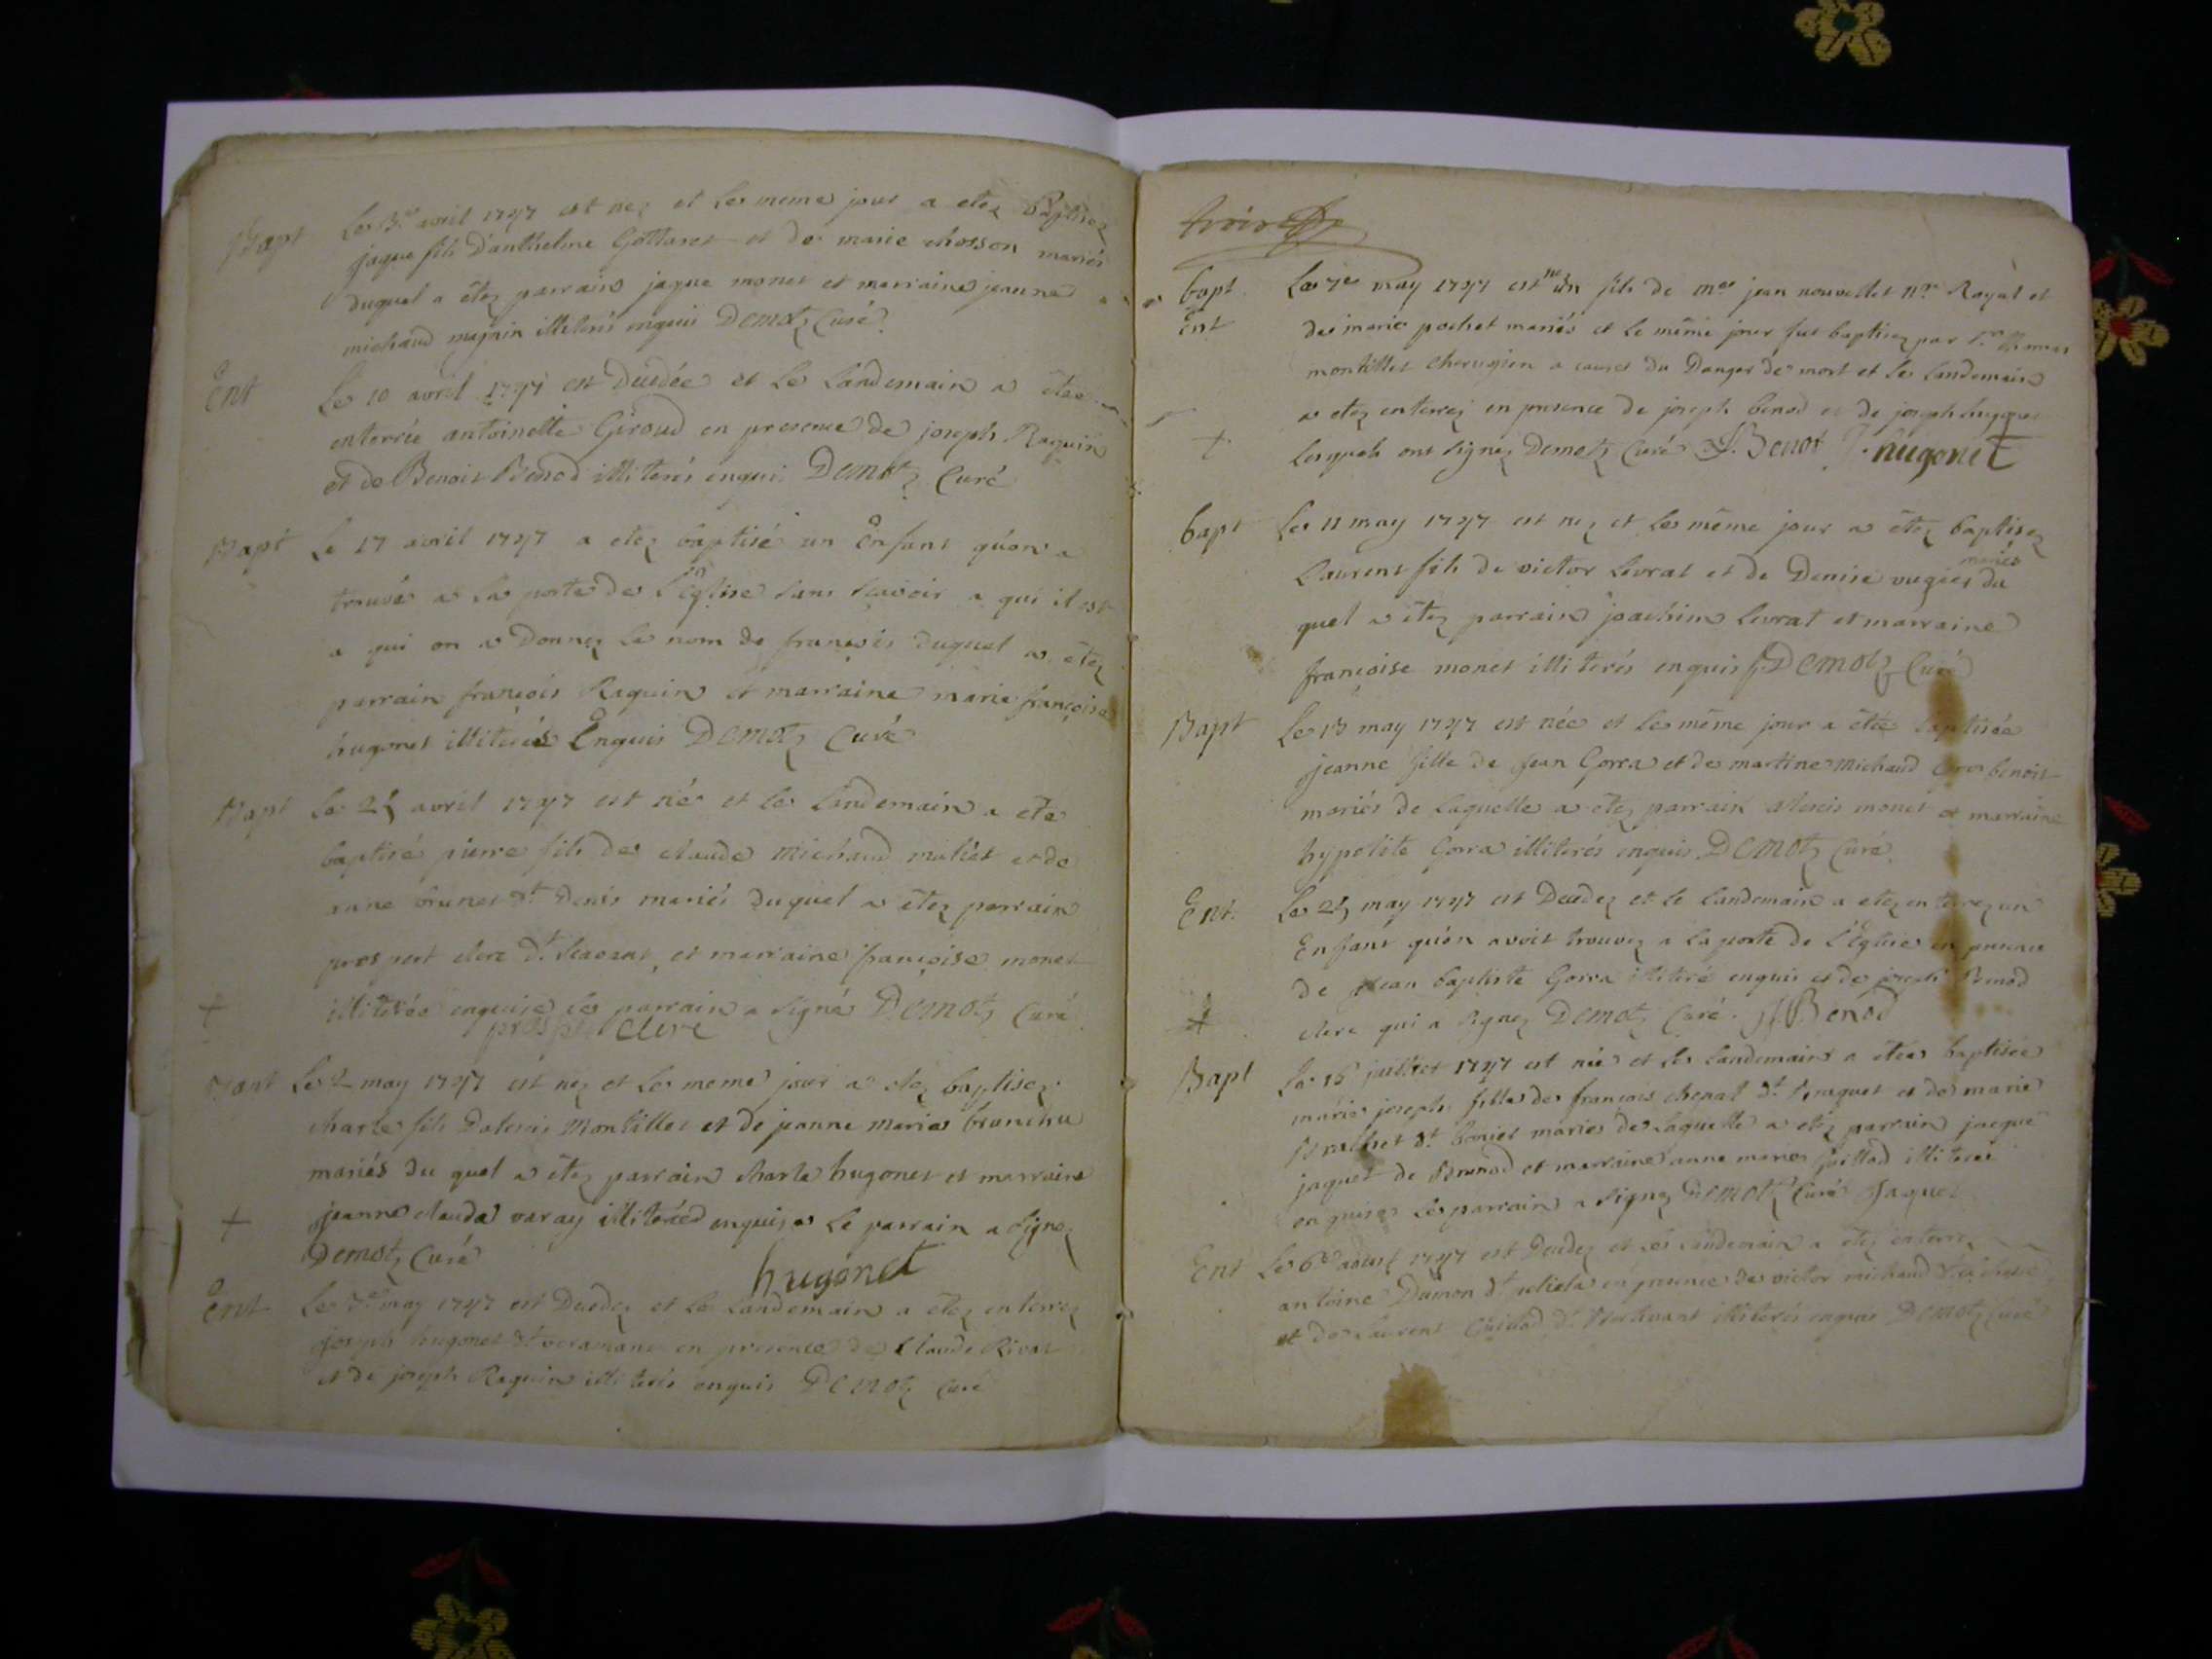 Bapt Le 3.e avril 1747 est nez et le meme jour a etez Baptisez
jaque fils d'anthelme Gottaret et de marie chosson mariés
duquel a étez parrain jaque monet et marraine jeanne
michaud magnin illiterés enquis Demotz Curé
Ent Le 10 avril 1747 est Décédée et le Landemain a étée
enterrée antoinette Giroud en presence de joseph Raquin
et de Benoit Benod illiterés enquis Demotz Curé
Bapt Le 17 avril 1747 a etez baptisé un Enfant qu'on a
trouvé a la porte de L'Eglise sans scavoir a qui il est
a qui on a Donnez le nom de françois duquel a étez
parrain françois Raquin et marraine marie françoise
hugonet illiterés Enquis Demotz Curé
Bapt Le 25 avril 1747 est né et le Landemain a ete
baptisé pierre fils de claude Michaud et de
brunet dt Denis mariés duquel a étez parrain
clerc dt et marraine françoise monet
+ illiterée enquise le parrain a signé Demotz Curé
clerc
Bapt Le 2 may 1747 est nez et le meme jour a etez baptisez
charle fils Montillet et de jeanne marie
mariés du quel a étez parrain charle hugonet et marraine
+ jeanne claude varay illiterée enquise le parrain a signez
Demotz Curé
hugonet
Ent Le 3.e may 1747 est Decedez et le Landemain a étez enterrez
joseph hugonet dt en presence de Claude Rivat
et de joseph Raquin illiterés enquis Demotz Curé
trois
bapt Le 7e may 1747 est né un fils de me jean nouvellet nre Royal et
Ent de marie pochet mariés et le même jour fut baptisez par
montillet cherugien a cause du Danger de mort et le landemain
a etez enterrez en presence de joseph benod et de joseph
+ lesquels ont signez Demotz Curé J. Benot J. hugonet
bapt Le 11 may 1747 est nez et le même jour a étez baptisez
mariés
Laurent fils de victor Livrat et de Denise du
quel a étez parrain joachim livrat et marraine
françoise monet illiterés enquis Demotz Curé
Bapt Le 13 may 1747 est née et le même jour a étée baptisée
jeanne fille de jean Gorra et de martine michaud benoit
mariés de Laquelle a étez parrain alexis monet et marraine
hypolite Gorra illiterés enquis Demotz Curé
Ent. Le 25 may 1747 est Decedez et le landemain a etez enterrez un
Enfant qu'on avoit trouvez a la porte de L'Eglise en presence
de jean baptiste Gorra illiteré enquis et de joseph Benod
clerc qui a signez Demotz Curé. J Benod
Bapt Le 16 juillet 1747 est née et le landemain a étée baptisée
marie joseph fille de françois chenal dt et de marie
dt mariés de Laquelle a étez parrain jaque
jaquet de et marraine anne marie illiterée
enquise le parrain a signez Demotz Curé Jaquet
Ent Le 6e aoust 1747 est Decedez et le Landemain a étez enterrez
antoine Dumon dt en presence de victor michaud
et de Laurent dt illiterés enquis Demotz Curé